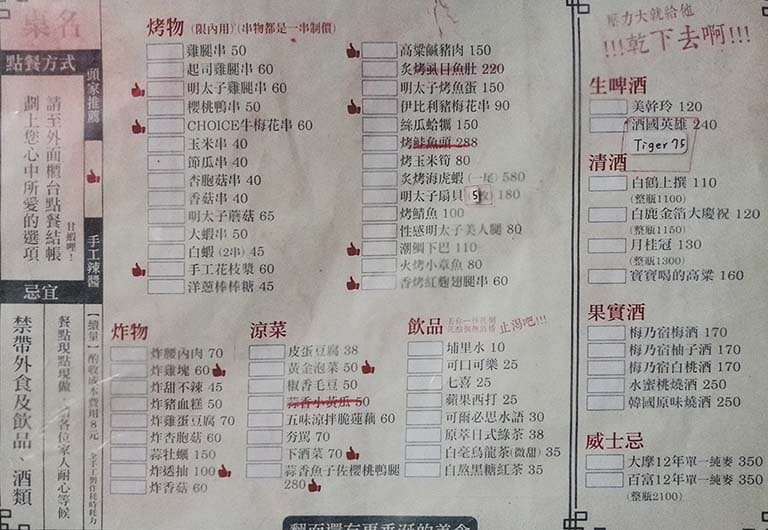 桌名
點餐方式
請至外面櫃台點餐結帳
劃上您心中所愛的選項
甘蝦哩!
忌宜
禁帶外食及飲品、酒類
餐點現點現做,
各位家人耐心等候
頭家推薦
手工辣醬
【續量】酌收成本費用8元
烤物(限內用)(串物都是一串制價)
雞腿串 50
起司雞腿串 60
明太子雞腿串 60
櫻桃鴨串 50
CHOICE牛梅花串 60
玉米串 40
節瓜串 40
杏胞菇串 40
香菇串 40
明太子蘑菇 65
大蝦串 50
白蝦 (2串) 45
手工花枝漿 60
洋蔥棒棒糖 45
高粱鹹豬肉 150
炙烤虱目魚肚 220
明太子烤魚蛋 150
伊比利豬梅花串 90
絲瓜蛤蠣 150
烤鮭魚頭 288
烤玉米筍 80
炙烤海虎蝦 (一尾) 580
明太子扇貝 5枚) 180
烤鯖魚 100
性感明太子美人腿 80
潮鯛下巴 110
火烤小章魚 80
香烤紅麴翅腿串 60
炸物
炸腰內肉 70
炸雞塊 60
炸甜不辣 45
炸豬血糕 50
炸雞蛋豆腐 70
炸杏胞菇 60
蒜牡蠣 150
炸透抽 100
炸香菇 60
涼菜
皮蛋豆腐 38
黃金泡菜 50
椒香毛豆 50
蒜香小黃瓜 50
五味涼拌脆蓮藕 60
夯駡 70
下酒菜 70
蒜香魚子佐櫻桃鴨腿
280
飲品
止渴吧!!!
埔里水 10
可口可樂 25
七喜 25
蘋果西打 25
可爾必思水語 30
原萃日式綠茶 38
白毫烏龍茶(微甜) 35
自熬黑糖紅茶 35
壓力大就給他
!!!乾下去啊!!!
生啤酒
美幹玲 120
酒國英雄 240
Tiger 75
清酒
白鶴上撰 110
(整瓶1100)
白鹿金箔大慶祝 120
(整瓶1150)
月桂冠 130
(整瓶1300)
寶寶喝的高粱 160
果實酒
梅乃宿梅酒 170
梅乃宿柚子酒 170
梅乃宿白桃酒 170
水蜜桃燒酒 250
韓國原味燒酒 250
威士忌
大摩12年單一純麥 350
百富12年單一純麥 350
(整瓶2100)
翻面還有更垂涎的美食